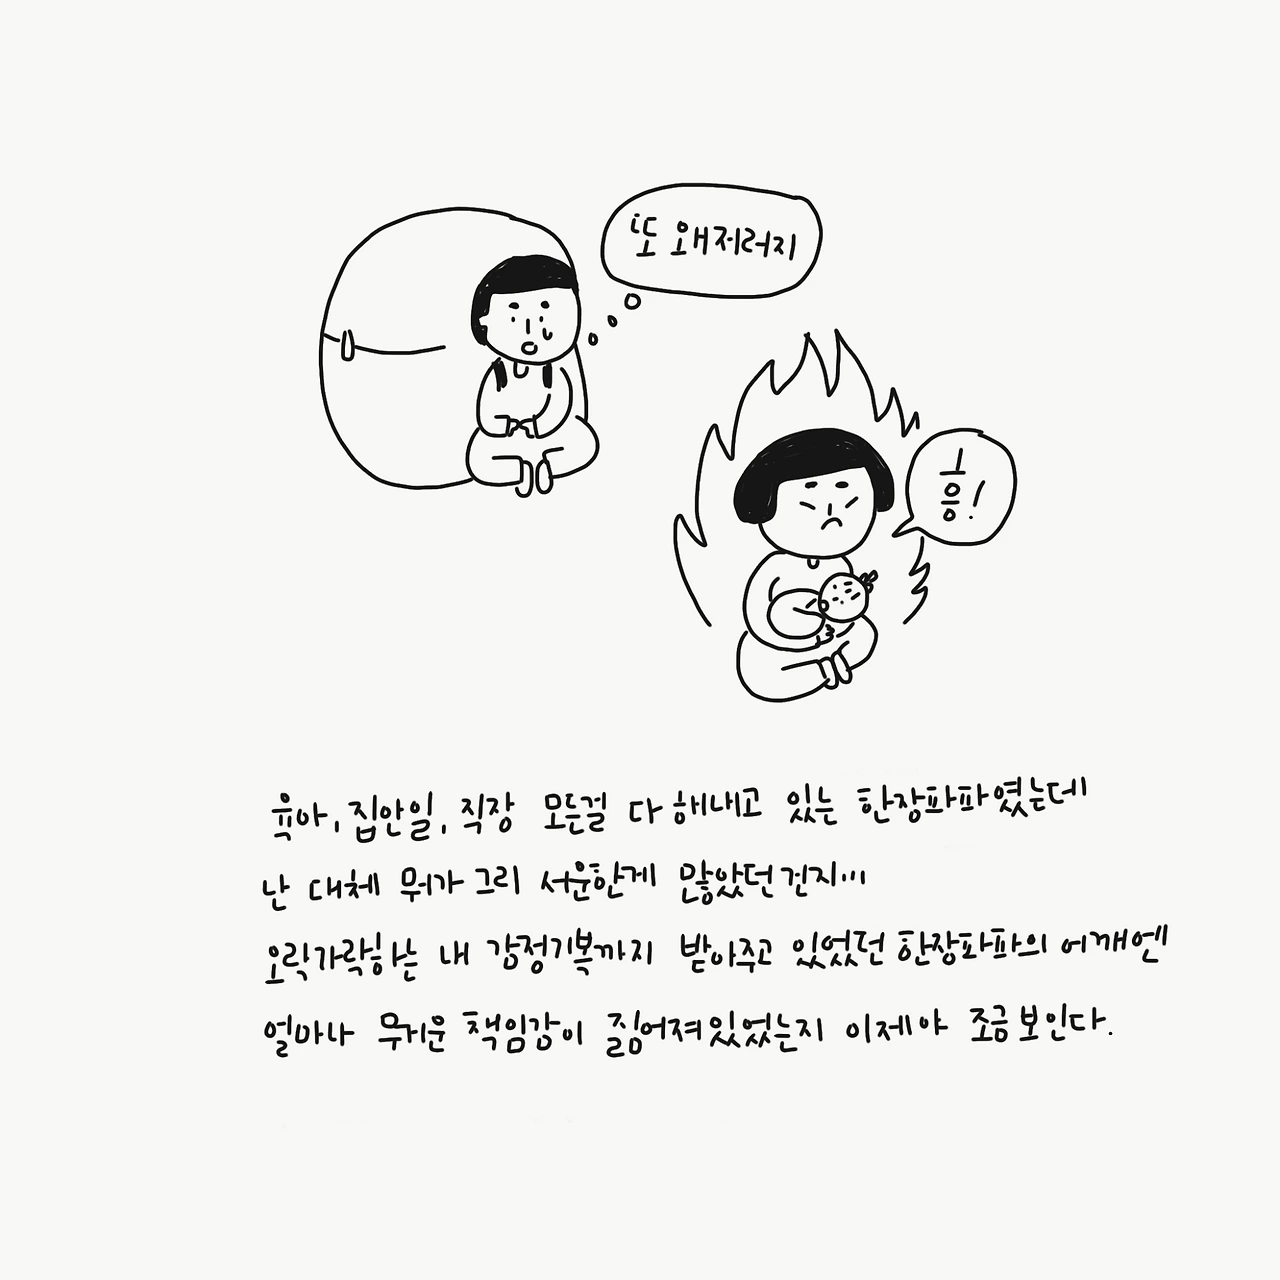 또 왜저러지
흥!
육아, 집안일, 직장 모든걸 다 해내고 있는 한장파파였는데
난 대체 뭐가 그리 서운한게 많았던건지...
오락가락하는 내 감정기복까지 받아주고 있었던 한장파파의 어깨엔
얼마나 무거운 책임감이 짊어져있었는지 이제야 조금 보인다.